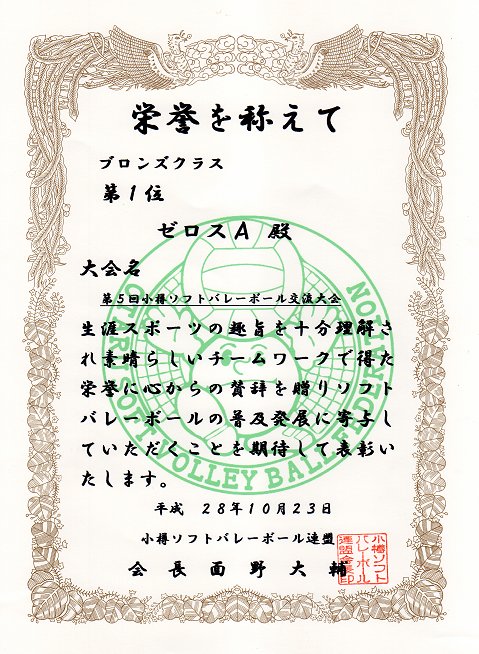 栄誉を称えて
ブロンズクラス
第1位
ゼロスA 殿
大会名
第5回小樽ソフトバレーボール交流大会
生涯スポーツの趣旨を十分理解さ
れ素晴らしいチームワークで得た
栄誉に心からの賛辞を贈りソフト
バレーボールの普及発展に寄与し
ていただくことを期待して表彰い
たします。
平成 28年10月23日
小樽ソフトバレーボール連盟
会長 面野大輔
小樽ソフト
バレーボール
連盟会長印
OTARU SOFT VOLLEY BALL FEDERATION